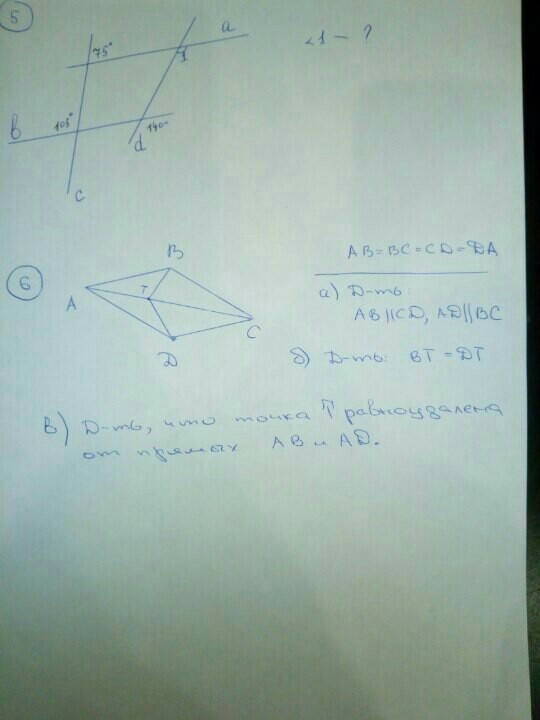 5
75°
1
a
<1 — ?
b
105°
140°
d
c
6
B
T
A
C
D
AB=BC=CD=DA
а) Д-ть:
AB||CD, AD||BC
б) Д-ть: BT = DT
в) Д-ть, что точка T равноудалена
от прямых AB и AD.